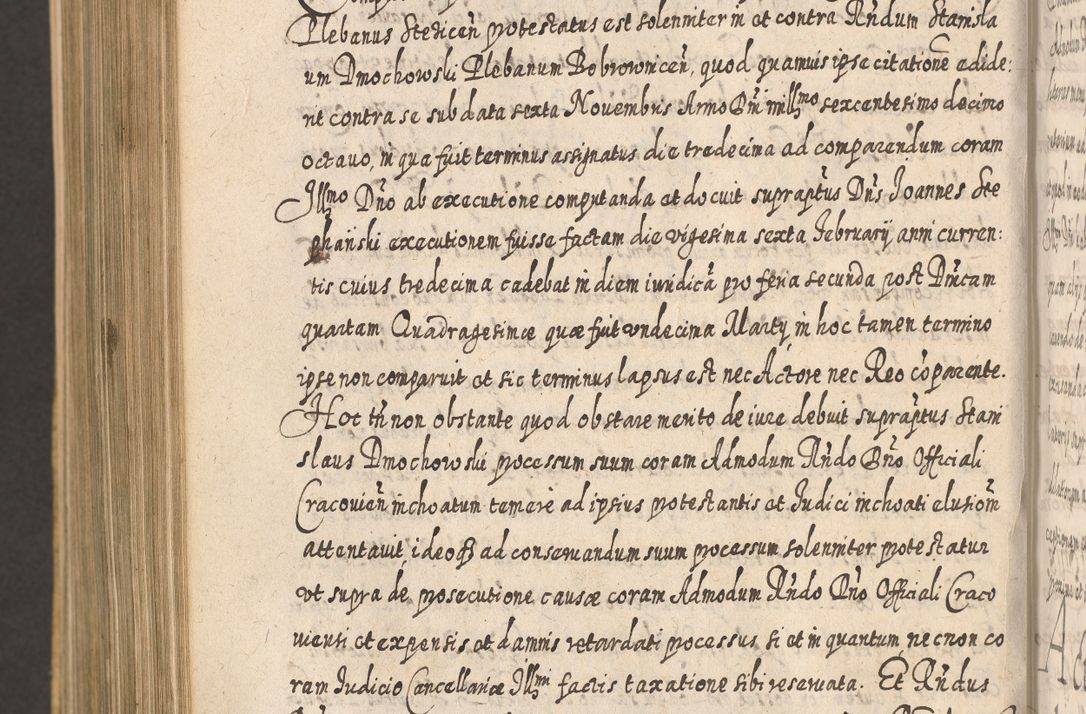 Plebanus Stezicen̄ protestatus est solenniter in et contra Rn̄dum Stanisla
um Dmochowski Plebanum Bobrownicen̄, quod quamuis ipse citatione adide:
rit contra se sub data sexta Nouembris Anno Dn̄i mill̄mo sexcentesimo decimo
octauo, in qua fuit terminus assignatus die tredecima ad comparendum coram
Ill̄mo Dn̄o ab executione computanda et docuit supraptūs Dn̄s Joannes Ste
phański executionem fuisse factam die vigesima sexta Februarij anni curren:
tis cuius tredecima cadebat in diem iuridicā pro feria secunda post Dn̄icam
quartam Quadragesimæ quæ fuit vndecima Martij, in hoc tamen termino
ipse non comparuit et sic terminus lapsus est nec Actore nec Reo cōparente.
Hoc tn̄ non obstante quod obstare merito de iure debuit supraptūs Stani
slaus Dmochowski processum suum coram Admodum Rn̄do Dn̄o Officiali
Cracouien̄ inchoatum temere ad ipsius protestantis et Judici inchoati elusiōm
attentauit ideoq3 ad conseruandum suum processum solenniter protestatur
vt supra de prosecutione causæ coram Admodum Rn̄do Dn̄o Officiali Craco
uiensi et expensis et damnis retardati processus si et in quantum necnon co
ram Judicio Cancellariæ Ill̄mi factis taxatione sibi reseruata. Et Rn̄dus